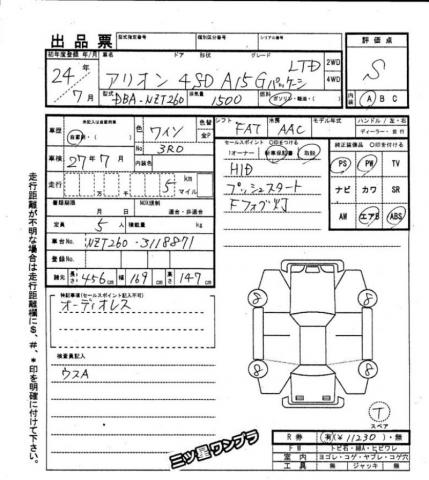 出品票
型式指定番号
類別区分番号
シリアル番号
評価点
初年度登録 年/月
車名
ドア
形状
グレード
24年
7月
アリオン 4SD A15Gパッケージ
LTD
2WD
4WD
S
型式
DBA-NZT260
排気量
1500
燃料
ガソリン・軽油・( )
内装
A B C
車歴
自家用・( )
色
ワイン
No
3R0
色替
金P
シフト
FAT
冷房
AAC
モデル年式
ハンドル/左・右
ディーラー・並行
車検
27年7月
内装色
セールスポイント ○印をつける
1オーナー
新車保証書
取説
純正装備品 ○印をつける
PS
PW
TV
ナビ
カワ
SR
AW
エアB
ABS
HID
プッシュスタート
Fフォグ灯
走行
万
千
5
km
マイル
書類期限
月
日
NOX規制
適合・非適合
定員
5人
積載量
kg
車台No.
NZT260-3118871
登録No.
諸元
長さ
456cm
幅
169cm
高さ
147cm
特記事項(セールスポイント記入不可)
オーディオレス
検査員記入
ウスA
8
8
8
8
T
スペア
三ツ星ワンプラ
R券
有(¥11230)・無
FW
トビ石・線A・ヒビワレ
室内
ヨゴレ・コゲ・ヤブレ・コゲ穴
工具
無
ジャッキ
無
走行距離が不明な場合は走行距離欄に$、#、*印を明確に付けて下さい。